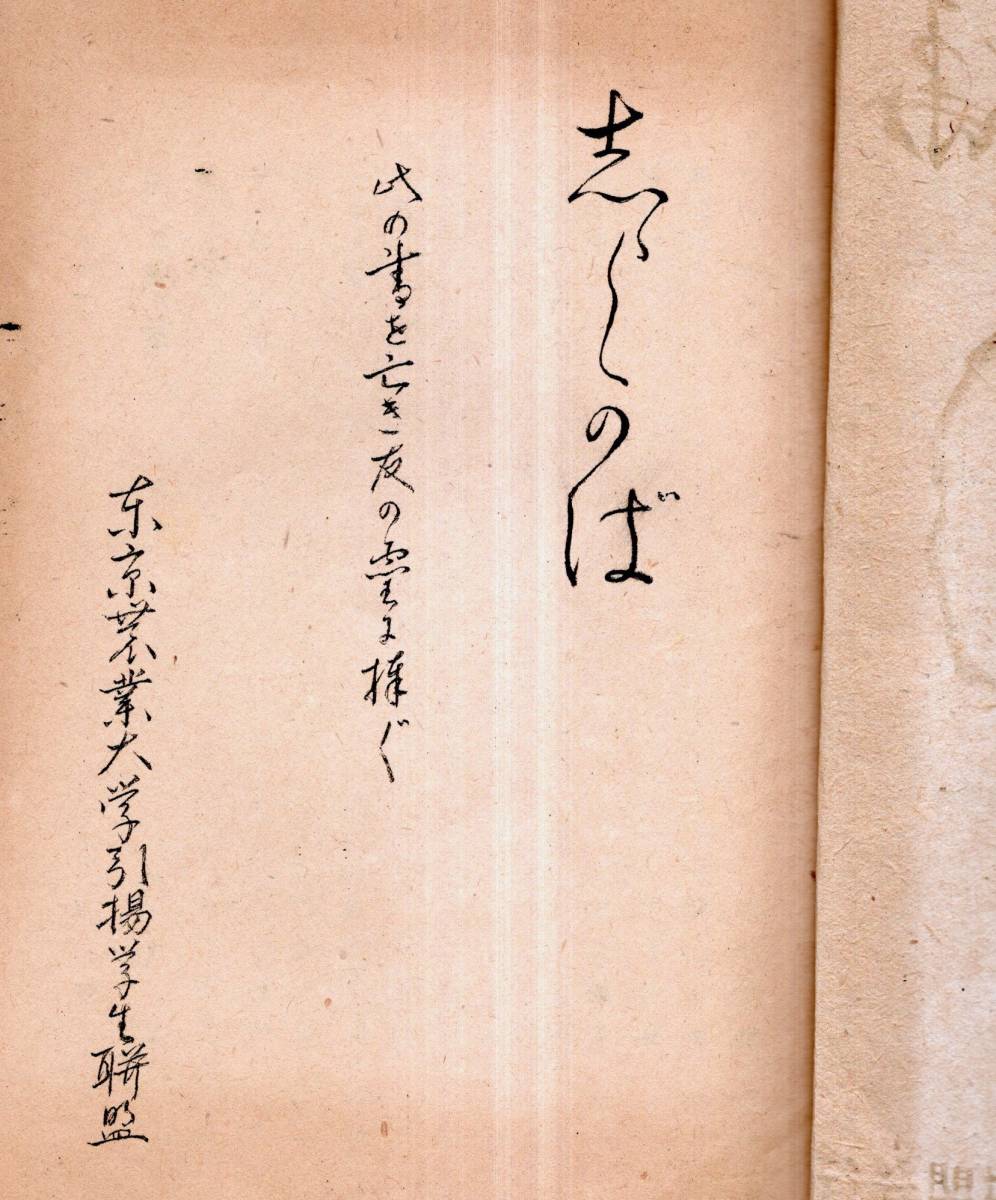 志らかば
此の書を亡き友の霊に捧ぐ
东京農業大学引揚学生聯盟